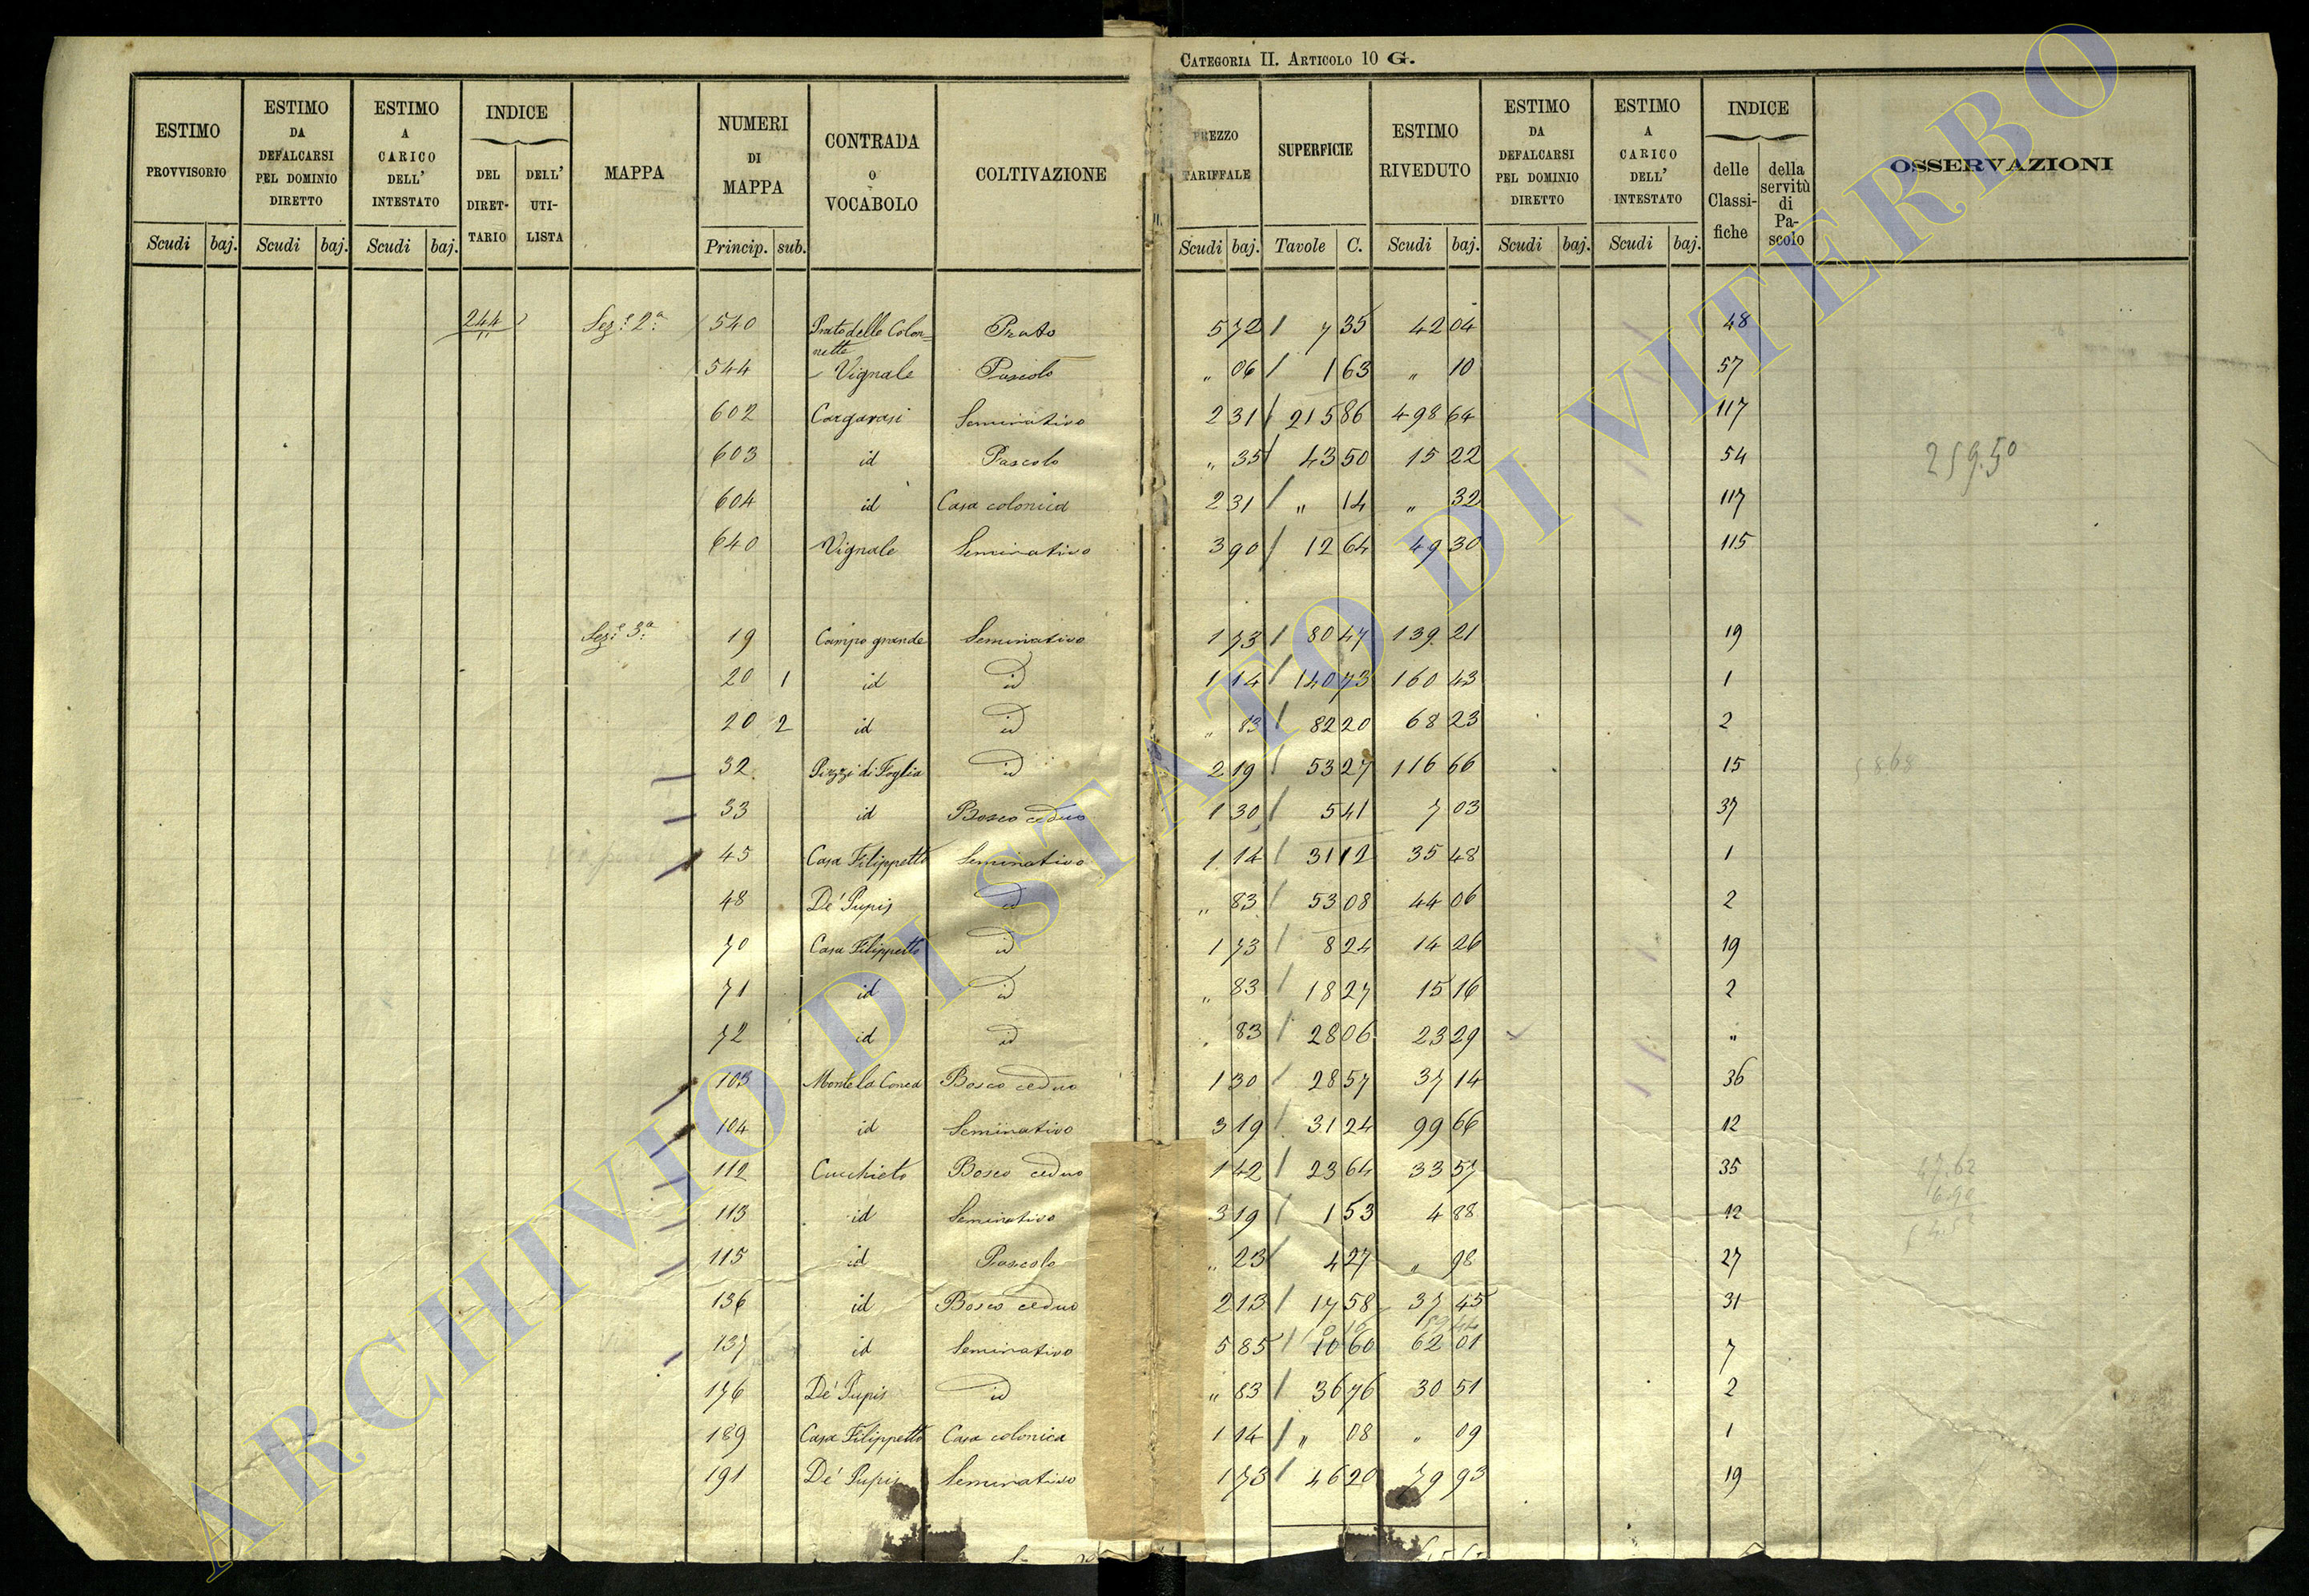 CATEGORIA II. ARTICOLO 10 G.
ESTIMO PROVVISORIO | ESTIMO DA DEFALCARSI PEL DOMINIO DIRETTO | ESTIMO A CARICO DELL' INTESTATO | INDICE | MAPPA | NUMERI DI MAPPA | CONTRADA O VOCABOLO | COLTIVAZIONE | PREZZO TARIFFALE | SUPERFICIE | ESTIMO RIVEDUTO | ESTIMO DA DEFALCARSI PEL DOMINIO DIRETTO | ESTIMO A CARICO DELL' INTESTATO | INDICE | OSSERVAZIONI
DEL DIRET-TARIO | DELL' UTI-LISTA | delle Classi-fiche | della servitù di Pa-scolo
Scudi baj. Scudi baj. Scudi baj. Princip. sub. Scudi baj. Tavole C. Scudi baj. Scudi baj. Scudi baj.
244 Sez.e 2a 540 Prato delle Colon=nette Prato 5 72 / 7 35 42 04 48
544 Vignale Pascolo " 06 / 1 63 " 10 57
602 Cargarasi Seminativo 2 31 / 215 86 498 64 117
603 id Pascolo " 35 / 43 50 15 22 54 259.50
604 id Casa colonica 2 31 / " 14 " 32 117
640 Vignale Seminativo 3 90 / 12 64 49 30 115
Sez.e 3a 19 Campo grande Seminativo 1 73 / 80 47 139 21 19
20 1 id id 1 14 / 140 73 160 43 1
20 2 id id " 83 / 82 20 68 23 2
32 Pizzi di Foglia id 2 19 / 53 27 116 66 15 58.68
33 id Bosco ceduo 1 30 / 5 41 7 03 37
45 Casa Filippetto Seminativo 1 14 / 31 12 35 48 1
48 De' Pupis id " 83 / 53 08 44 06 2
70 Casa Filippetto id 1 73 / 8 24 14 26 19
71 id id " 83 / 18 27 15 16 2
72 id id " 83 / 28 06 23 29 "
103 Monte la Conca Bosco ceduo 1 30 / 28 57 37 14 36
104 id Seminativo 3 19 / 31 24 99 66 12
112 Cucchieto Bosco ceduo 1 42 / 23 64 33 57 35
113 id Seminativo 3 19 / 1 53 4 88 12
115 id Pascolo " 23 / 4 27 " 98 27
136 id Bosco ceduo 2 13 / 17 58 37 45 31
137 id Seminativo 5 85 / 10 60 62 01 7
176 De' Pupis id " 83 / 36 76 30 51 2
189 Casa Filippetto Casa colonica 1 14 / " 08 " 09 1
191 De' Pupis Seminativo 1 73 / 46 20 79 93 19
ARCHIVIO DI STATO DI VITERBO